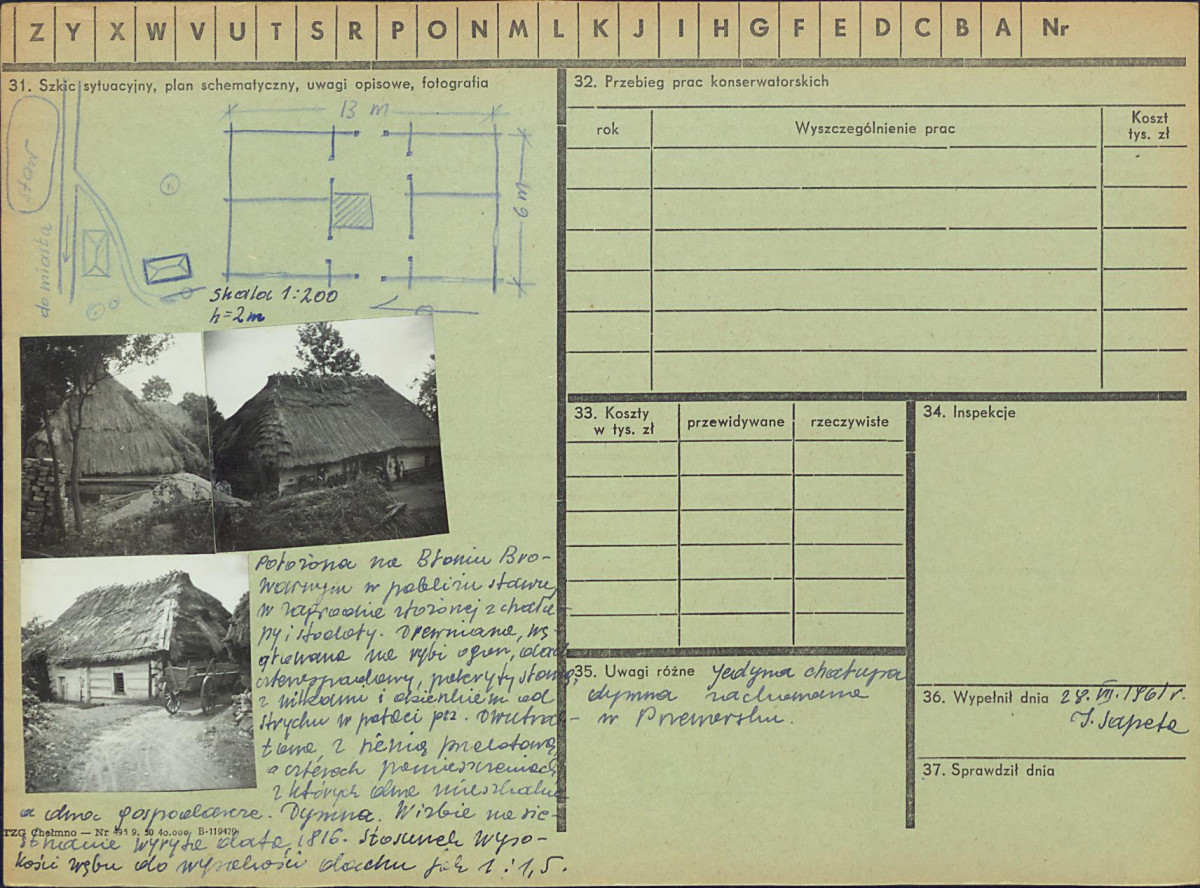 Z Y X W V U T S R P O N M L K J I H G F E D C B A Nr
31. Szkic sytuacyjny, plan schematyczny, uwagi opisowe, fotografia
13 m
staw
do miasta
9 m
skala 1:200
h=2m
Położona na Błoniu Bro-
warnym w pobliżu stawu,
w zagrodzie złożonej z chału-
py i stodoły. Drewniana, wę-
głowana na rybi ogon, dach
czterospadowy, pokryty słomą,
z kitkami i okienkiem od
strychu w połaci prz. Dwutra-
ktowa z sienią przelotową,
o czterech pomieszczeniach
z których dwa mieszkalne
a dwa gospodarcze. Dymna. W izbie na sie-
strzanie wyryta data 1816. Stosunek wyso-
kości zrębu do wysokości dachu jak 1:1,5.
TZG Chełmno — Nr 495 9. 50 40.000, B-119479
32. Przebieg prac konserwatorskich
rok
Wyszczególnienie prac
Koszt
tys. zł
33. Koszty
w tys. zł
przewidywane
rzeczywiste
34. Inspekcje
35. Uwagi różne Jedyna chałupa
dymna zachowana
w Przeworsku.
36. Wypełnił dnia 28.VII.1961r.
J. Sapeta
37. Sprawdził dnia